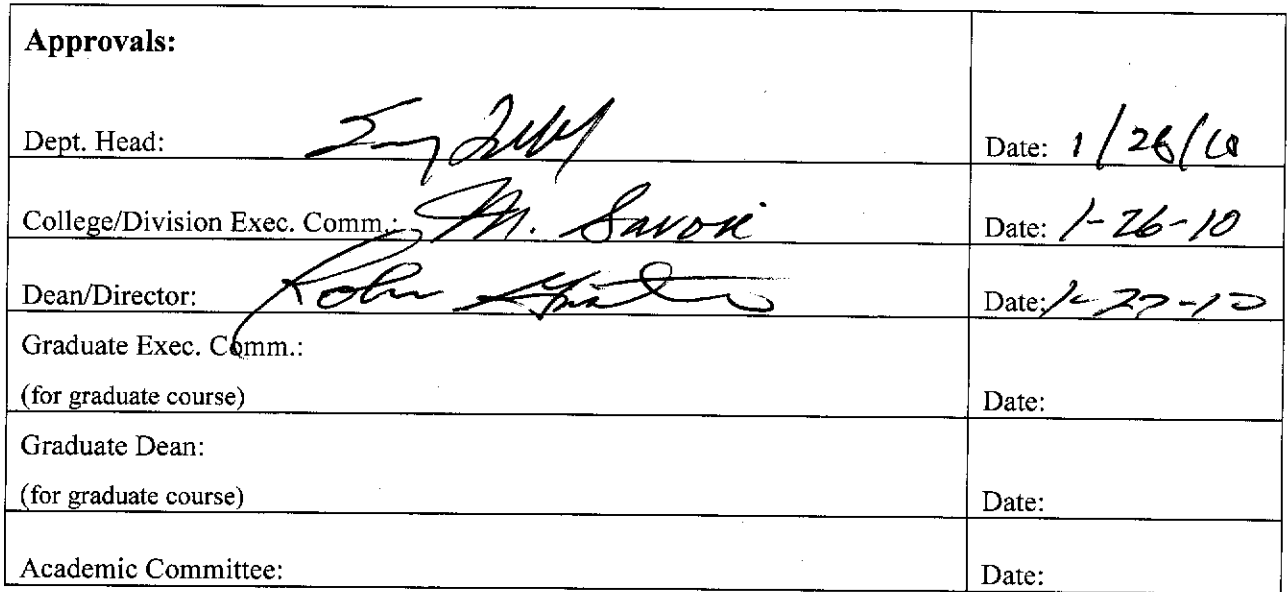 Approvals:
Dept. Head: Date: 1/26/10
College/Division Exec. Comm.: M. Savoie Date: 1-26-10
Dean/Director: Date: 1-27-10
Graduate Exec. Comm.:
(for graduate course) Date:
Graduate Dean:
(for graduate course) Date:
Academic Committee: Date: